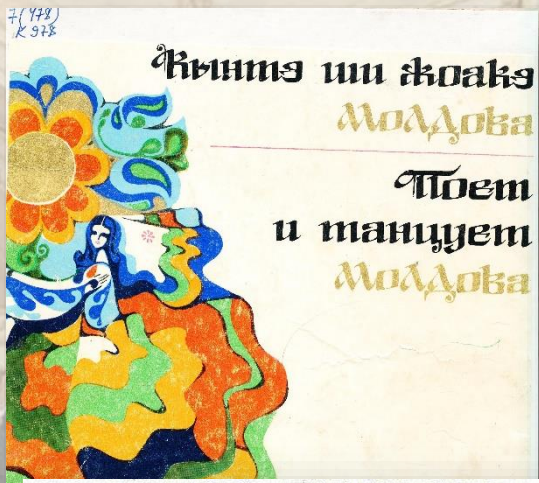 7(478)
К 978
Кынтэ ши жоакэ
Молдова
Поет
и танцует
Молдова